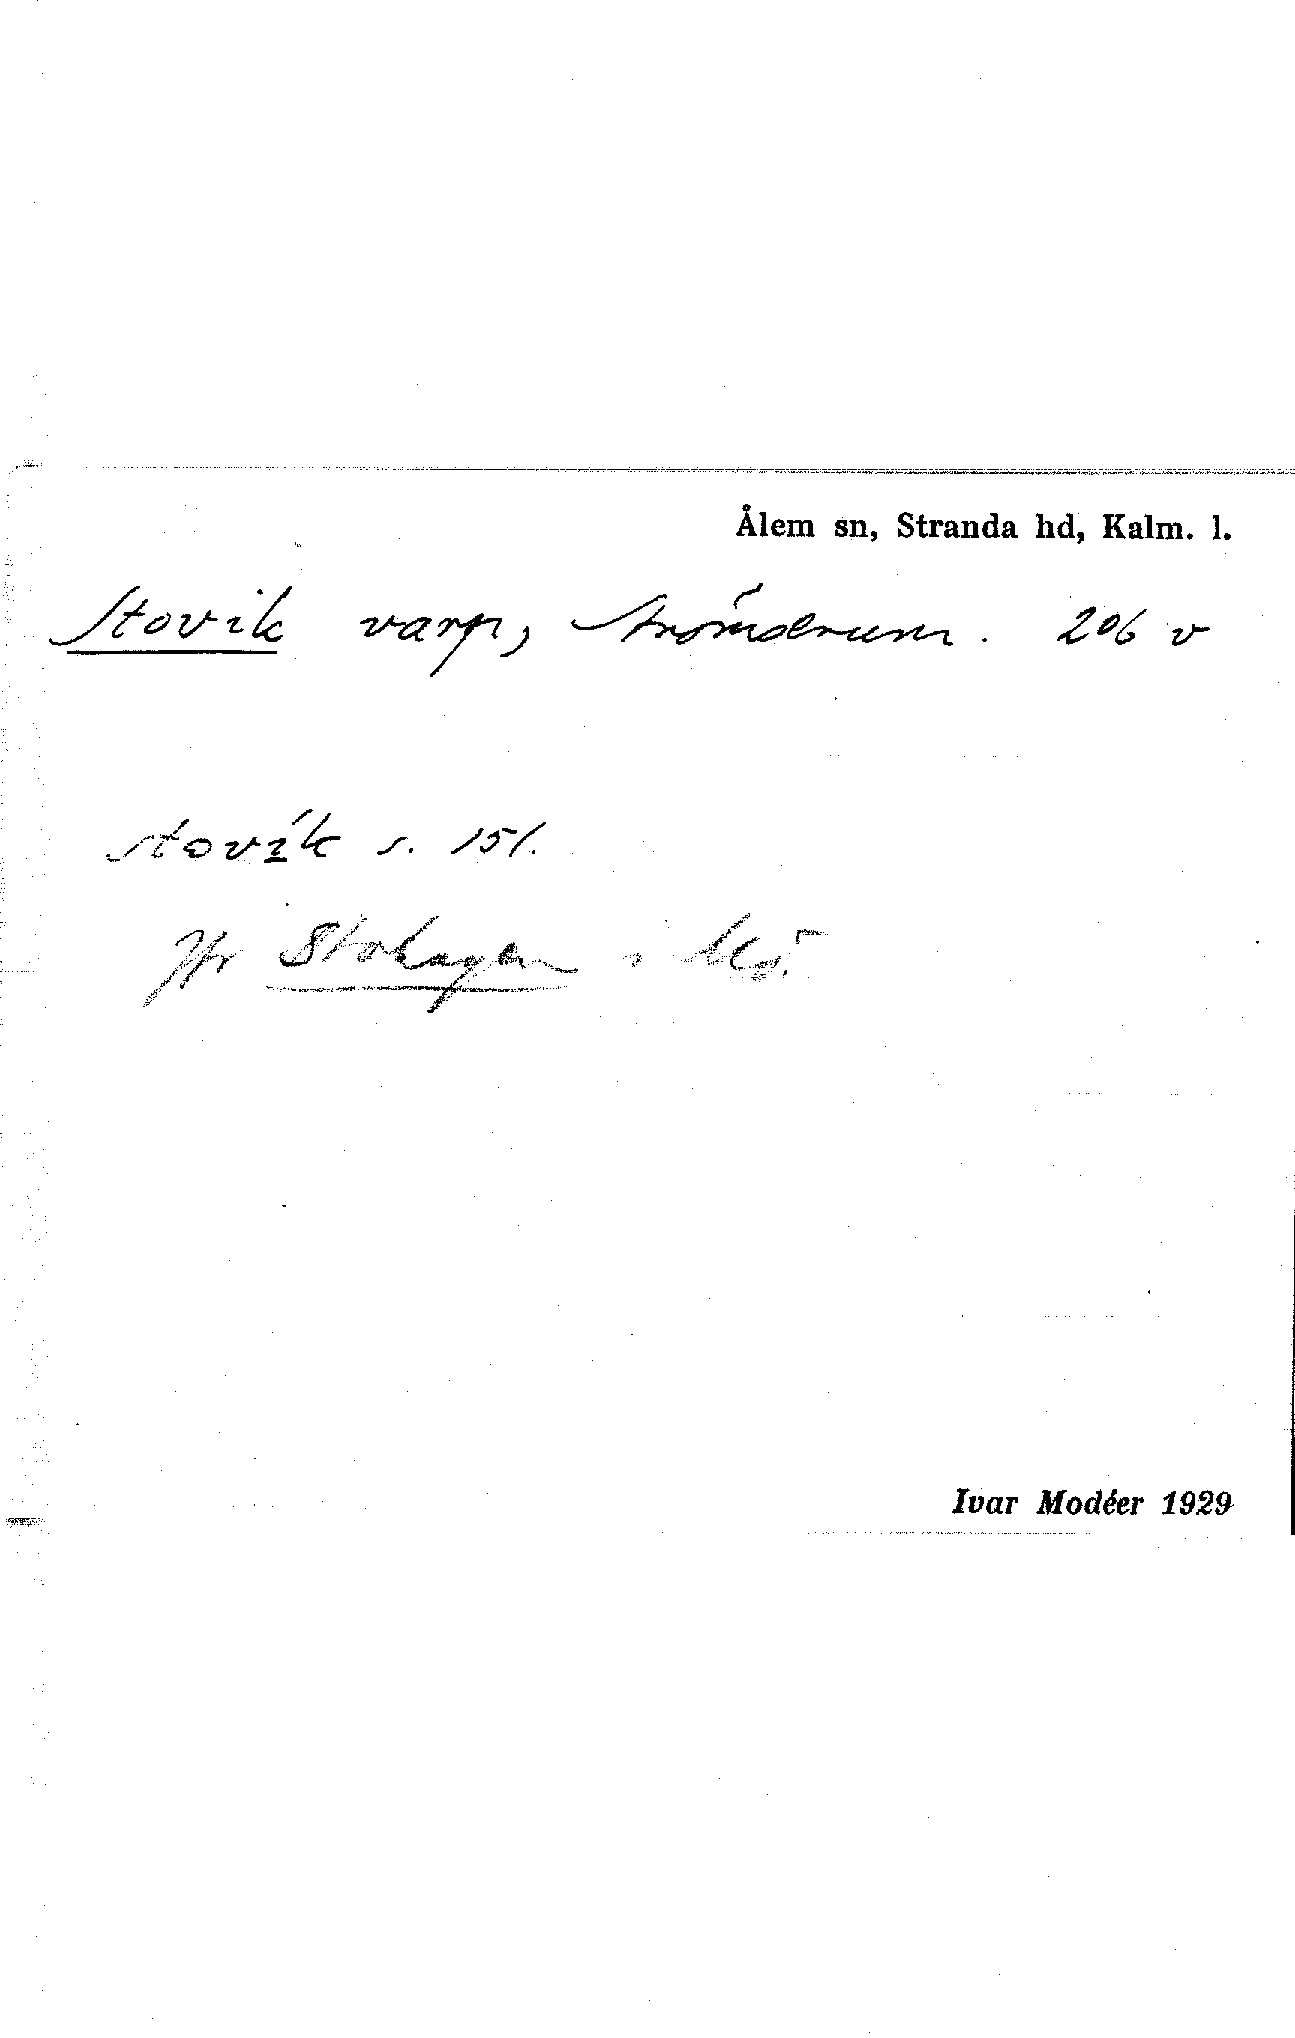 Ålem sn, Stranda hd, Kalm. l.
Stovik varp, Strömsrum. 206 v
stovik s. 151.
Jfr Stohagen i
Ivar Modéer 1929